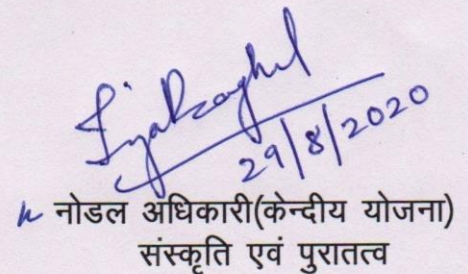 29/8/2020
नोडल अधिकारी(केन्दीय योजना)
संस्कृति एवं पुरातत्व